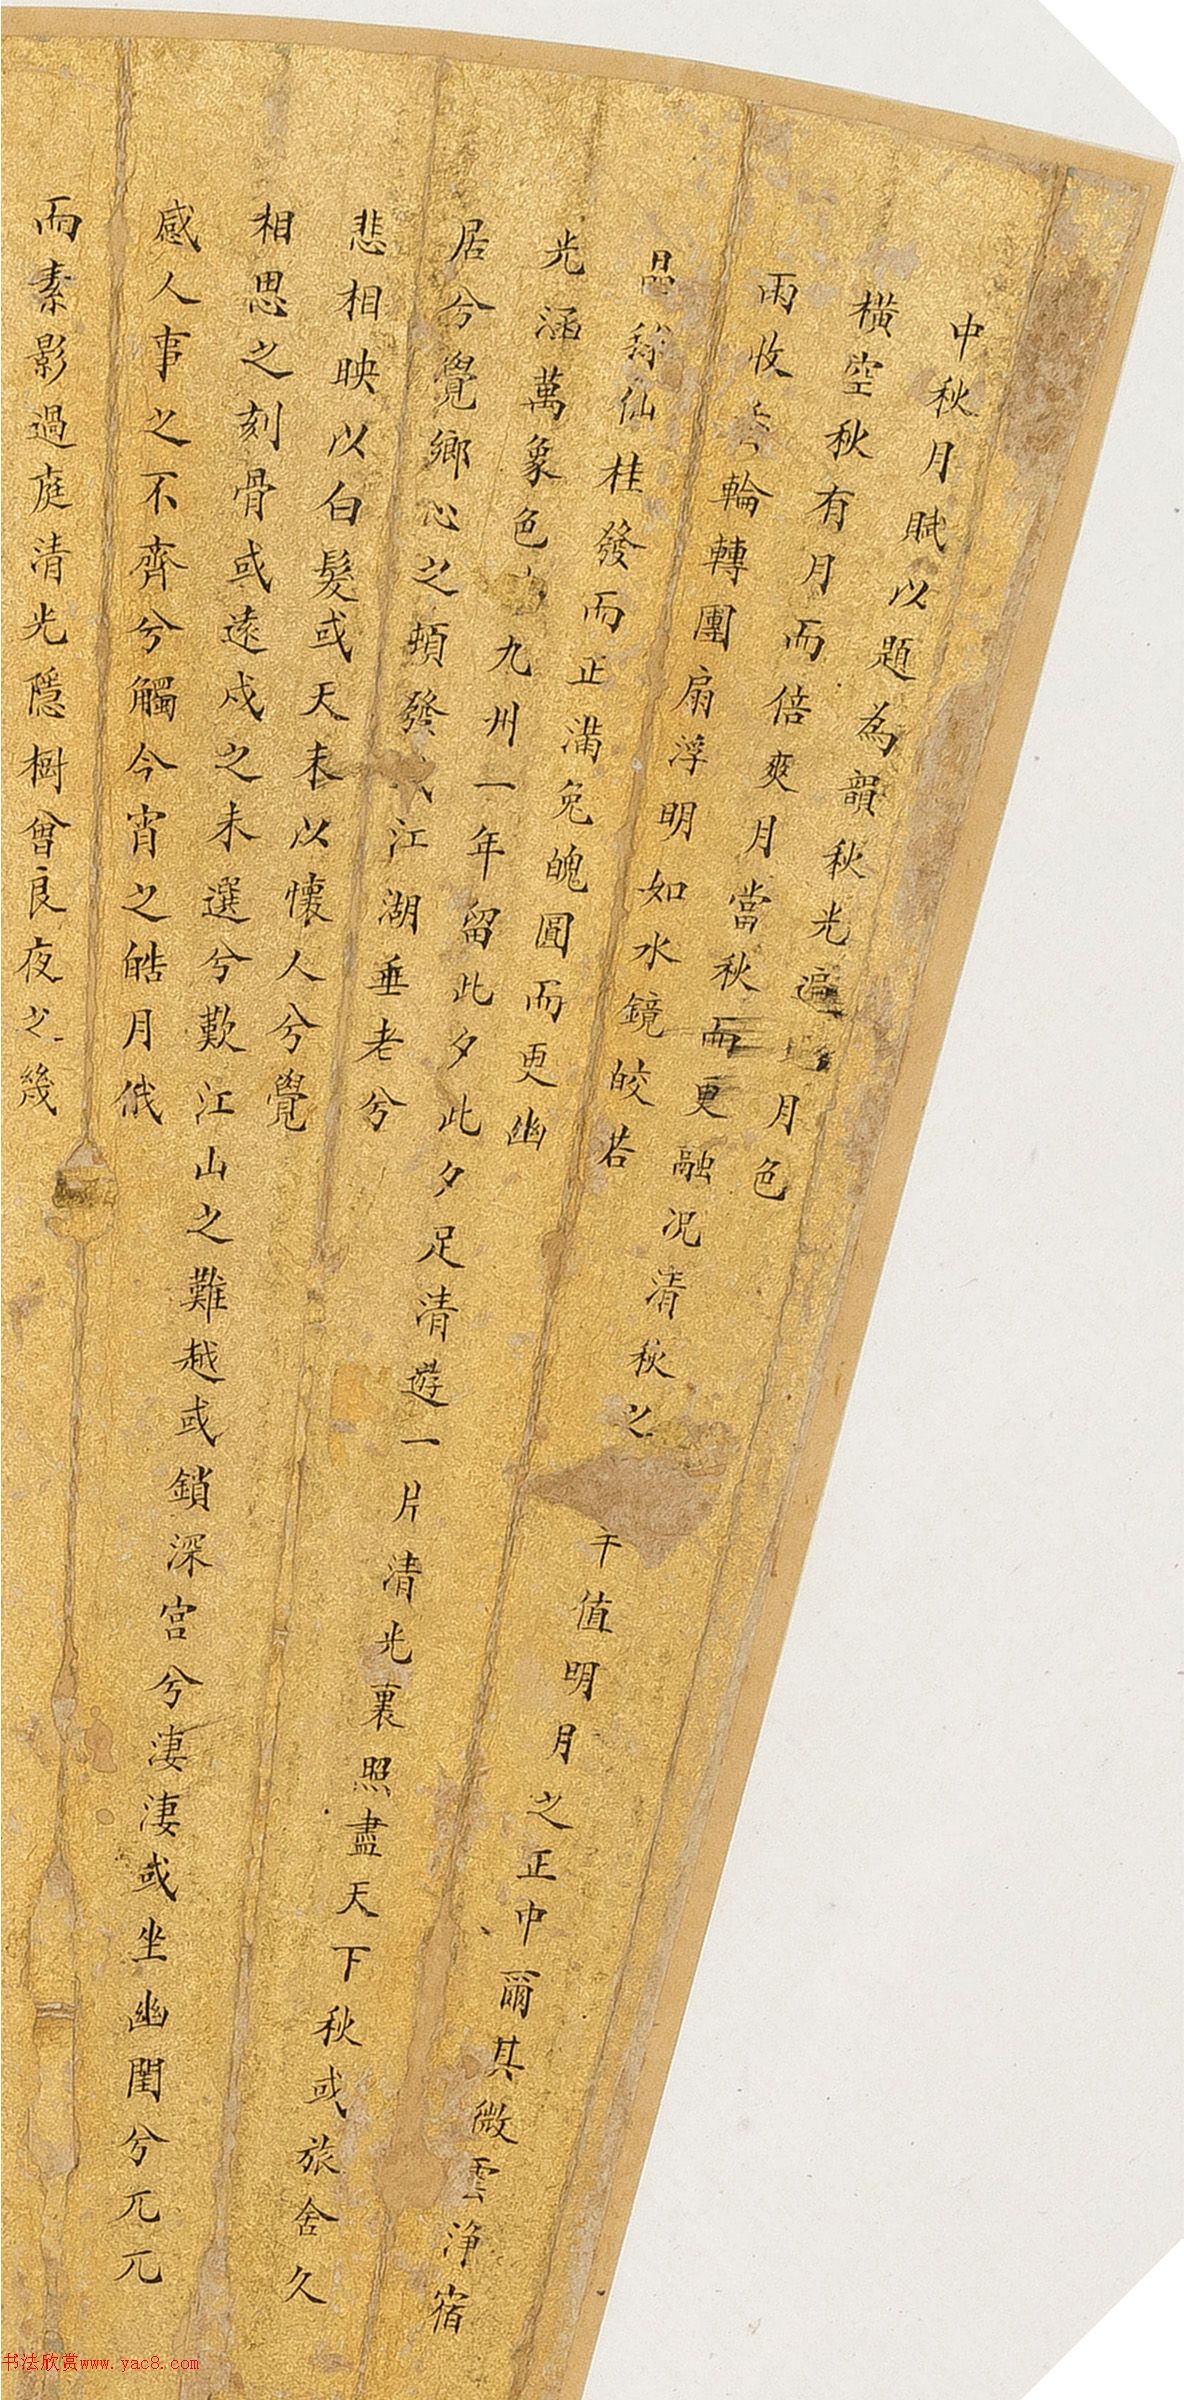 中秋月賦以題為韻秋光遍月色
橫空秋有月而倍爽月當秋而更融况清秋之干值明月之正中爾其微雲淨宿
雨收輪轉團扇浮明如水鏡皎若
晶仙桂發而正滿兔魄圓而更幽
光涵萬象色九州一年留此夕此夕足清遊一片清光裏照盡天下秋或旅舍久
居兮覺鄉心之頓發江湖垂老兮
悲相映以白髮或天末以懷人兮覺
相思之刻骨或遠戍之未選兮歎江山之難越或鎖深宮兮淒淒或坐幽閨兮兀兀
感人事之不齊兮觸今宵之皓月俄
而素影過庭清光隱樹曾良夜之幾
书法欣赏www.yac8.com